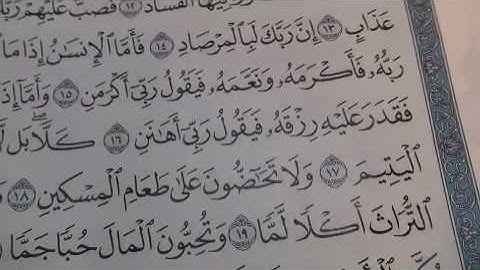 فِيهَا ٱلْفَسَادَ ١٢ فَصَبَّ عَلَيْهِمْ رَبُّكَ
عَذَابٍ ١٣ إِنَّ رَبَّكَ لَبِٱلْمِرْصَادِ ١٤ فَأَمَّا ٱلْإِنسَٰنُ إِذَا مَا
رَبُّهُۥ فَأَكْرَمَهُۥ وَنَعَّمَهُۥ فَيَقُولُ رَبِّىٓ أَكْرَمَنِ ١٥ وَأَمَّآ إِذَا
فَقَدَرَ عَلَيْهِ رِزْقَهُۥ فَيَقُولُ رَبِّىٓ أَهَٰنَنِ ١٦ كَلَّا ۖ بَل
ٱلْيَتِيمَ ١٧ وَلَا تَحَٰٓضُّونَ عَلَىٰ طَعَامِ ٱلْمِسْكِينِ ١٨
ٱلتُّرَاثَ أَكْلًا لَّمًّا ١٩ وَتُحِبُّونَ ٱلْمَالَ حُبًّا جَمًّا